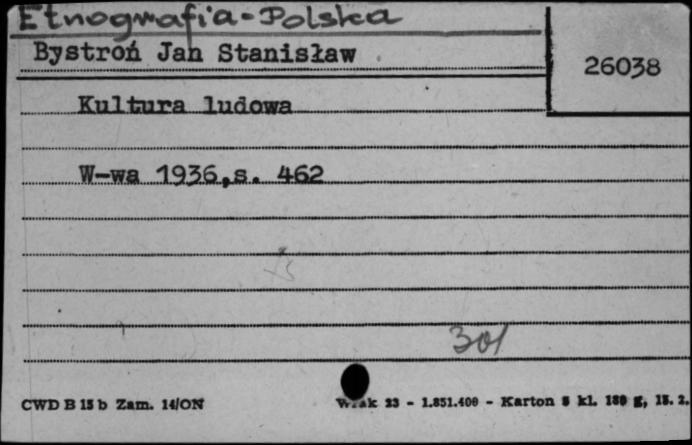 Etnografia-Polska
Bystroń Jan Stanisław
26038
Kultura ludowa
W-wa 1936,s. 462
301
CWD B 15 b Zam. 14/ON
23 - 1.851.400 - Karton kl. 180 g, 15. 2.